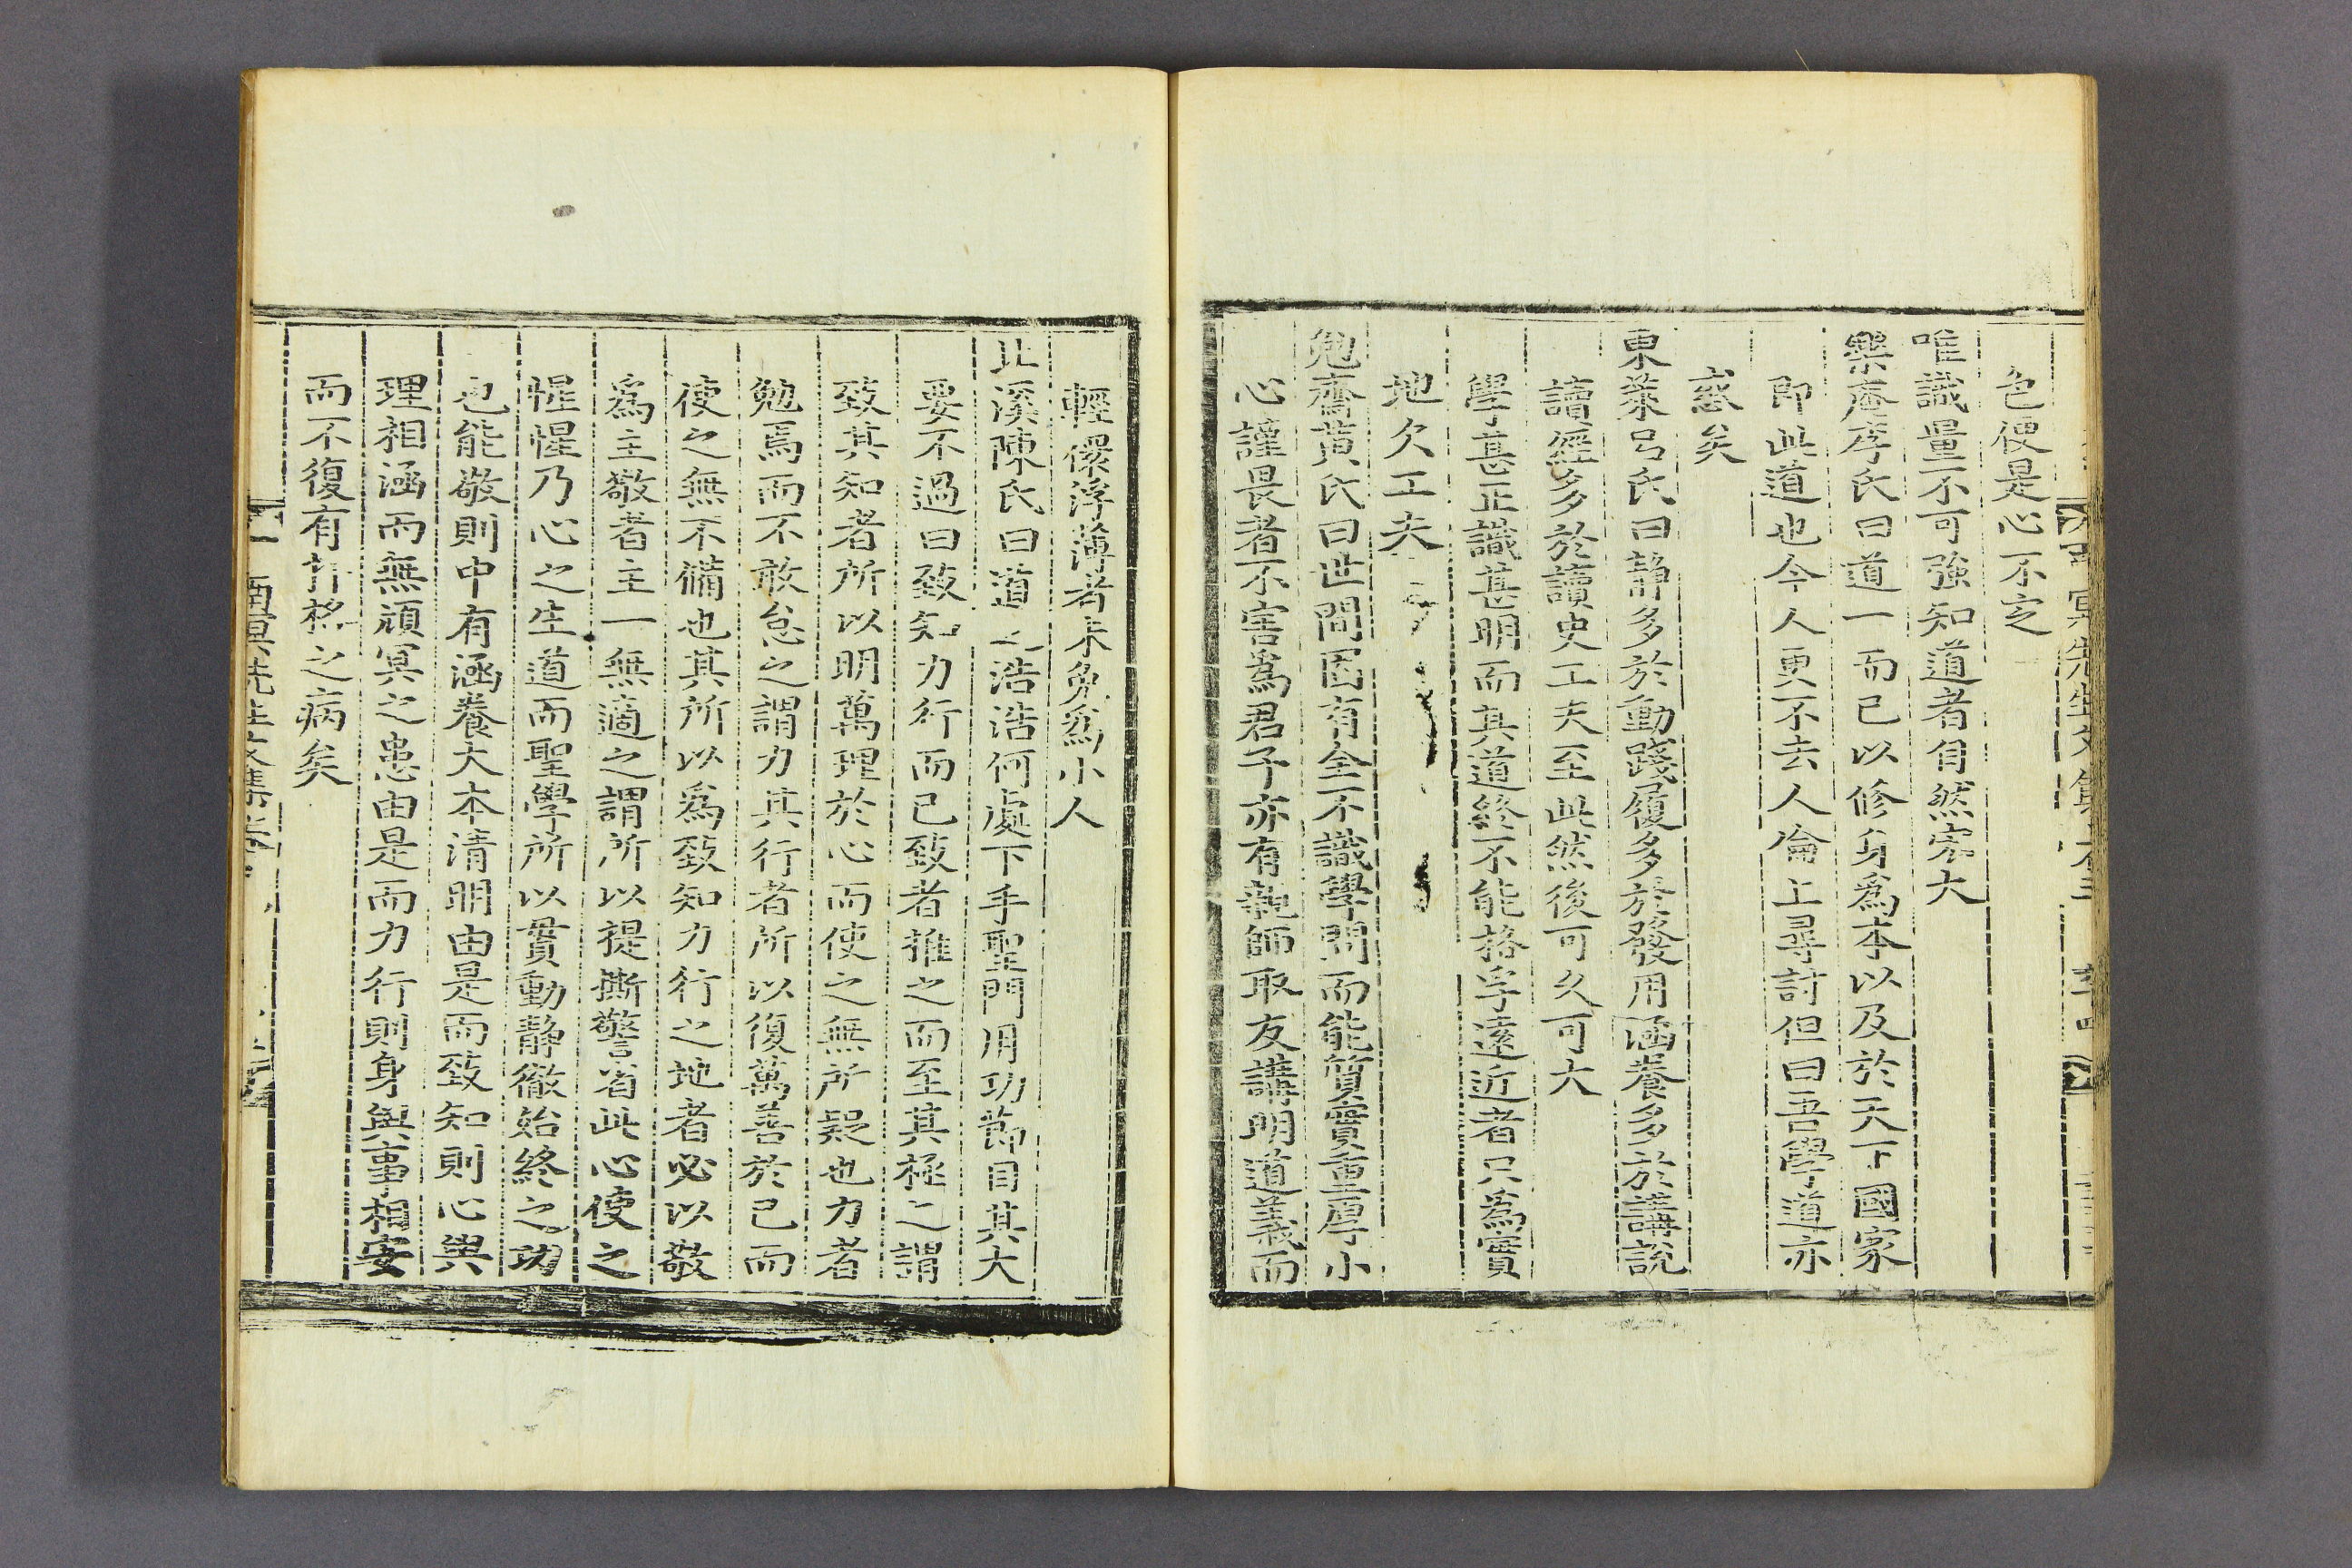 色便是心不定
唯識量不可強知道者自然宏大
樂庵李氏曰道一而已以修身爲本以及於天下國家
即此道也今人更不去人倫上尋討但曰吾學道亦
惑矣
東萊呂氏曰靜多於動踐履多於發用涵養多於講說
讀經多於讀史工夫至此然後可久可大
學甚正識甚明而其道終不能格孚遠近者只爲實
地欠工夫
勉齋黃氏曰世間固有全不識學問而能質實重厚小
心謹畏者不害爲君子亦有親師取友講明道義而
輕儇浮薄者未免爲小人
北溪陳氏曰道之浩浩何處下手聖門用功節目其大
要不過曰致知力行而已致者推之而至其極之謂
致其知者所以明萬理於心而使之無所疑也力者
勉焉而不敢怠之謂力其行者所以復萬善於己而
使之無不備也其所以爲致知力行之地者必以敬
爲主敬者主一無適之謂所以提撕警省此心使之
惺惺乃心之生道而聖學所以貫動靜徹始終之功
也能敬則中有涵養大本清明由是而致知則心與
理相涵而無頑冥之患由是而力行則身與事相安
而不復有扞格之病矣
南冥先生文集卷